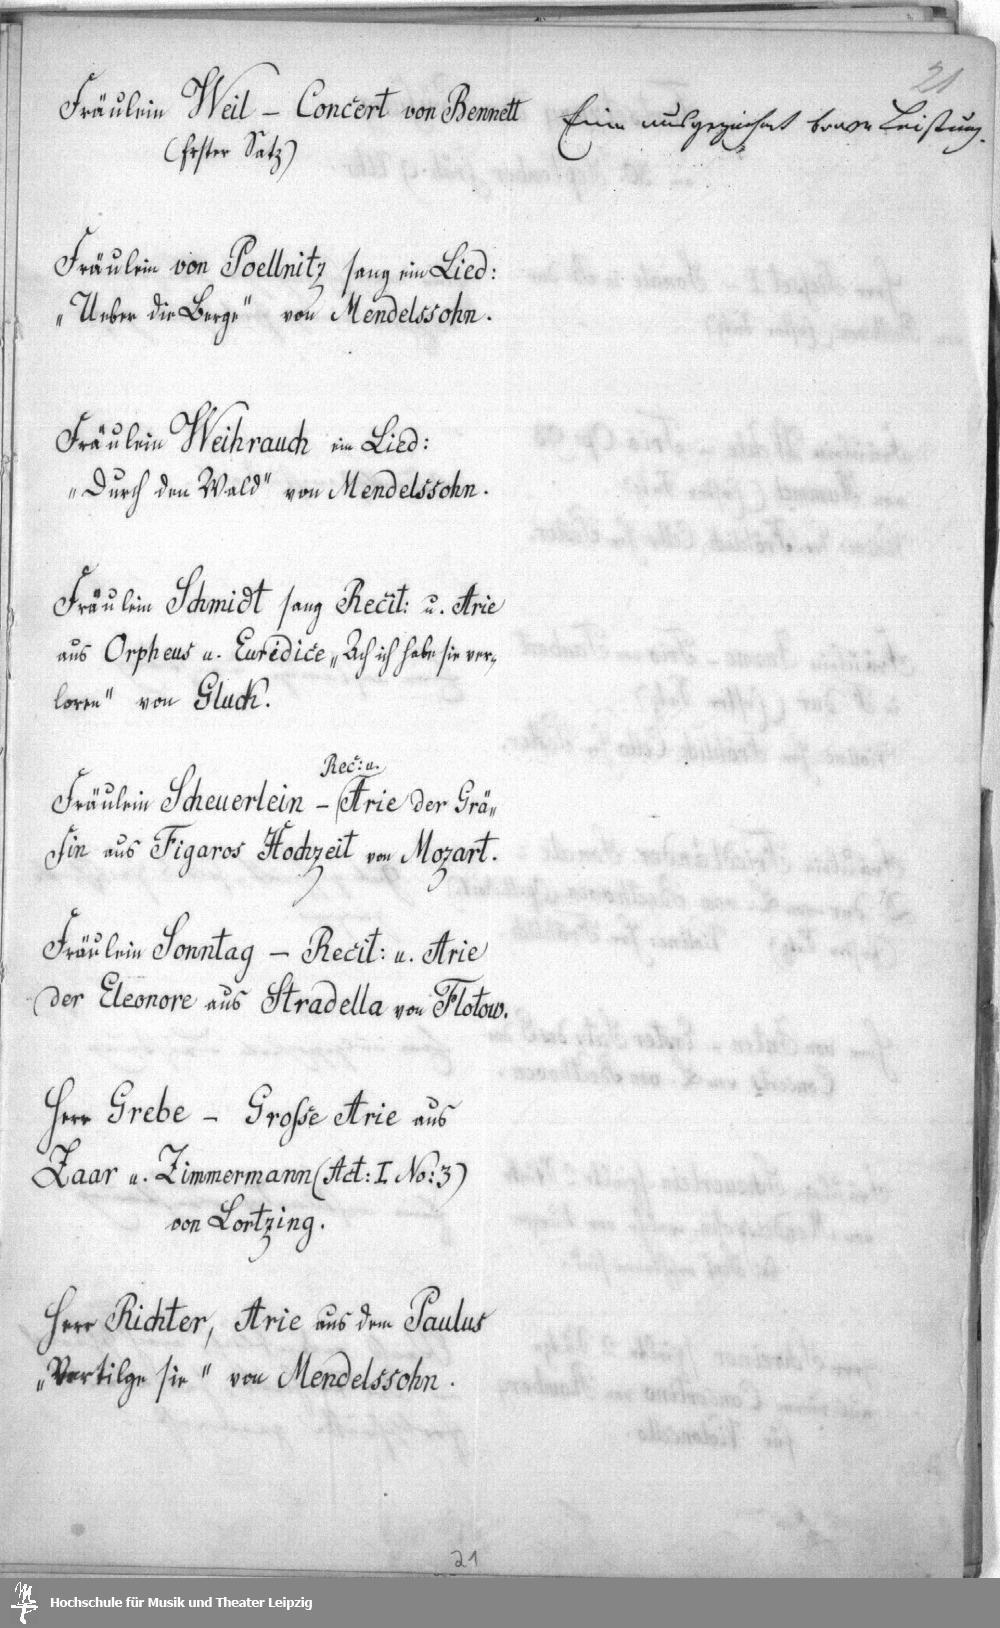 21
Fräulein Weil – Concert von Bennett Eine ausgezeichnet brave Leistung.
(Erster Satz)
Fräulein von Poellnitz sang ein Lied:
„Ueber die Berge" von Mendelssohn.
Fräulein Weihrauch ein Lied:
„Durch den Wald" von Mendelssohn.
Fräulein Schmidt sang Recit: u. Arie
aus Orpheus u. Euridice „Ach ich habe sie ver-
loren" von Gluck.
Rec: u.
Fräulein Scheuerlein – Arie der Grä-
fin aus Figaros Hochzeit von Mozart.
Fräulein Sonntag – Recit: u. Arie
der Eleonore aus Stradella von Flotow.
Herr Grebe – Grosse Arie aus
Zaar u. Zimmermann (Act: I No: 3)
von Lortzing.
Herr Richter, Arie aus dem Paulus
„Vertilge sie" von Mendelssohn.
21
Hochschule für Musik und Theater Leipzig